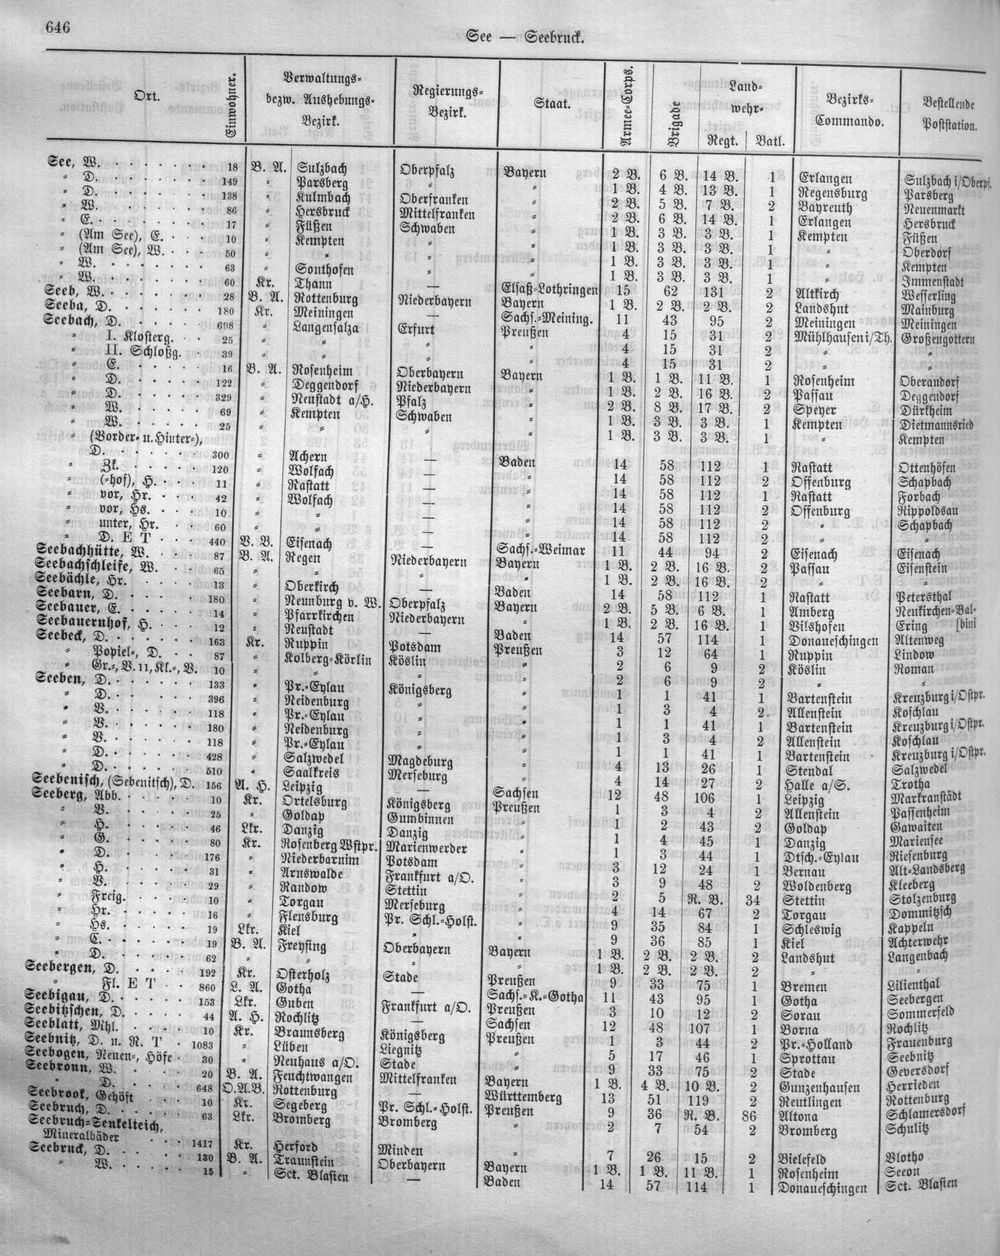 646
See — Seebruck.
Ort. Einwohner. Verwaltungs- bezw. Aushebungs- Bezirk. Regierungs- Bezirk. Staat. Armee-Corps. Brigade Land- wehr- Regt. Batl. Bezirks- Commando. Bestellende Poststation.
See, W. 18 B. A. Sulzbach Oberpfalz Bayern 2 B. 6 B. 14 B. 1 Erlangen Sulzbach i/Oberpf.
" D. 149 " Parsberg " " 1 B. 4 B. 13 B. 1 Regensburg Parsberg
" D. 138 " Kulmbach Oberfranken " 2 B. 5 B. 7 B. 2 Bayreuth Neuenmarkt
" W. 86 " Hersbruck Mittelfranken " 2 B. 6 B. 14 B. 1 Erlangen Hersbruck
" E. 17 " Füßen Schwaben " 1 B. 3 B. 3 B. 1 Kempten Füßen
" (Am See), E. 10 " Kempten " " 1 B. 3 B. 3 B. 1 " Oberdorf
" (Am See), W. 50 " " " " 1 B. 3 B. 3 B. 1 " Kempten
" W. 63 " Sonthofen " " 1 B. 3 B. 3 B. 1 " Immenstadt
" W. 60 Kr. Thann — Elsaß-Lothringen 15 62 131 2 Altkirch Wesserling
Seeb, W. 28 B. A. Rottenburg Niederbayern Bayern 1 B. 2 B. 2 B. 2 Landshut Mainburg
Seeba, D. 180 Kr. Meiningen — Sachs.-Meining. 11 43 95 2 Meiningen Meiningen
Seebach, D. 698 " Langensalza Erfurt Preußen 4 15 31 2 Mühlhausen i/Th. Großengottern
" I. Klosterg. 25 " " " " 4 15 31 2 " "
" II. Schloßg. 39 " " " " 4 15 31 2 " "
" E. 16 B. A. Rosenheim Oberbayern Bayern 1 B. 1 B. 11 B. 1 Rosenheim Oberaudorf
" D. 122 " Deggendorf Niederbayern " 1 B. 2 B. 16 B. 2 Passau Deggendorf
" D. 329 " Neustadt a/H. Pfalz " 2 B. 8 B. 17 B. 2 Speyer Dürkheim
" W. 69 " Kempten Schwaben " 1 B. 3 B. 3 B. 1 Kempten Dietmannsried
" W. 25 " " " " 1 B. 3 B. 3 B. 1 " Kempten
" (Vorder- u. Hinter-),
D. 300 " Achern — Baden 14 58 112 1 Rastatt Ottenhöfen
" Zk. 120 " Wolfach — " 14 58 112 2 Offenburg Schapbach
" (-hof), H. 11 " Rastatt — " 14 58 112 1 Rastatt Forbach
" vor, Hr. 42 " Wolfach — " 14 58 112 2 Offenburg Rippoldsau
" vor, Hs. 10 " " — " 14 58 112 2 " Schapbach
" unter, Hr. 60 " " — " 14 58 112 2 " "
" D. E T 440 V. B. Eisenach — Sachs.-Weimar 11 44 94 2 Eisenach Eisenach
Seebachhütte, W. 87 B. A. Regen Niederbayern Bayern 1 B. 2 B. 16 B. 2 Passau Eisenstein
Seebachschleife, W. 65 " " " " 1 B. 2 B. 16 B. 2 " "
Seebächle, Hr. 13 " Oberkirch — Baden 14 58 112 1 Rastatt Petersthal
Seebarn, D. 180 " Neunburg v. W. Oberpfalz Bayern 2 B. 5 B. 6 B. 1 Amberg Neukirchen-Bal-
Seebauer, E. 14 " Pfarrkirchen Niederbayern " 1 B. 2 B. 16 B. 1 Vilshofen Ering [bini
Seebauernhof, H. 12 " Neustadt — Baden 14 57 114 1 Donaueschingen Altenweg
Seebeck, D. 163 Kr. Ruppin Potsdam Preußen 3 12 64 1 Ruppin Lindow
" Popiel-, D. 87 " Kolberg-Körlin Köslin " 2 6 9 2 Köslin Roman
" Gr.-, V. u. Kl.-, V. 10 " " " " 2 6 9 2 " "
Seeben, D. 133 " Pr.-Eylau Königsberg " 1 1 41 1 Bartenstein Kreuzburg i/Ostpr.
" D. 396 " Neidenburg " " 1 3 4 2 Allenstein Koschlau
" V. 118 " Pr.-Eylau " " 1 1 41 1 Bartenstein Kreuzburg i/Ostpr.
" V. 180 " Neidenburg " " 1 3 4 2 Allenstein Koschlau
" V. 118 " Pr.-Eylau " " 1 1 41 1 Bartenstein Kreuzburg i/Ostpr.
" D. 428 " Salzwedel Magdeburg " 4 13 26 1 Stendal Salzwedel
" D. 510 " Saalkreis Merseburg " 4 14 27 2 Halle a/S. Trotha
Seebenisch, (Sebenitsch), D. 156 A. H. Leipzig — Sachsen 12 48 106 1 Leipzig Markranstädt
Seeberg, Abb. 10 Kr. Ortelsburg Königsberg Preußen 1 3 4 2 Allenstein Passenheim
" V. 25 " Goldap Gumbinnen " 1 2 43 2 Goldap Gawaiten
" H. 46 Lkr. Danzig Danzig " 1 4 45 1 Danzig Mariensee
" G. 80 Kr. Rosenberg Wstpr. Marienwerder " 1 3 44 1 Dtsch.-Eylau Riesenburg
" D. 176 " Niederbarnim Potsdam " 3 12 24 1 Bernau Alt-Landsberg
" H. 31 " Arnswalde Frankfurt a/O. " 3 9 48 2 Woldenberg Kleeberg
" V. 29 " Randow Stettin " 2 5 R. B. 34 Stettin Stolzenburg
" Freig. 10 " Torgau Merseburg " 4 14 67 2 Torgau Dommitzsch
" Hr. 16 " Flensburg Pr. Schl.-Holst. " 9 35 84 1 Schleswig Kappeln
" Hs. 19 Lkr. Kiel " " 9 36 85 1 Kiel Achterwehr
" E. 19 B. A. Freysing Oberbayern Bayern 1 B. 2 B. 2 B. 2 Landshut Langenbach
" D. 62 " " " " 1 B. 2 B. 2 B. 2 " "
Seebergen, D. 192 Kr. Osterholz Stade Preußen 9 33 75 1 Bremen Lilienthal
" Fl. E T 860 L. A. Gotha — Sachs.-K.-Gotha 11 43 95 1 Gotha Seebergen
Seebigau, D. 153 Lkr. Guben Frankfurt a/O. Preußen 3 10 12 2 Sorau Sommerfeld
Seebitzschen, D. 44 A. H. Rochlitz — Sachsen 12 48 107 1 Borna Rochlitz
Seeblatt, Mhl. 10 Kr. Braunsberg Königsberg Preußen 1 3 44 2 Pr.-Holland Frauenburg
Seebnitz, D. u. R. T 1083 " Lüben Liegnitz " 5 17 46 1 Sprottau Seebnitz
Seebogen, Neuen-, Höfe 30 " Neuhaus a/O. Stade " 9 33 75 2 Stade Geversdorf
Seebronn, W. 20 B. A. Feuchtwangen Mittelfranken Bayern 1 B. 4 B. 10 B. 2 Gunzenhausen Herrieden
" D. 648 O.A.B. Rottenburg — Württemberg 13 51 119 2 Reutlingen Rottenburg
Seebrook, Gehöft 16 Kr. Segeberg Pr. Schl.-Holst. Preußen 9 36 R. B. 86 Altona Schlamersdorf
Seebruch, D. 63 Lkr. Bromberg Bromberg " 2 7 54 2 Bromberg Schulitz
Seebruch-Senkelteich,
Mineralbäder 1417 Kr. Herford Minden " 7 26 15 2 Bielefeld Vlotho
Seebruck, D. 130 B. A. Traunstein Oberbayern Bayern 1 B. 1 B. 11 B. 1 Rosenheim Seeon
" W. 15 " Sct. Blasien — Baden 14 57 114 1 Donaueschingen Sct. Blasien